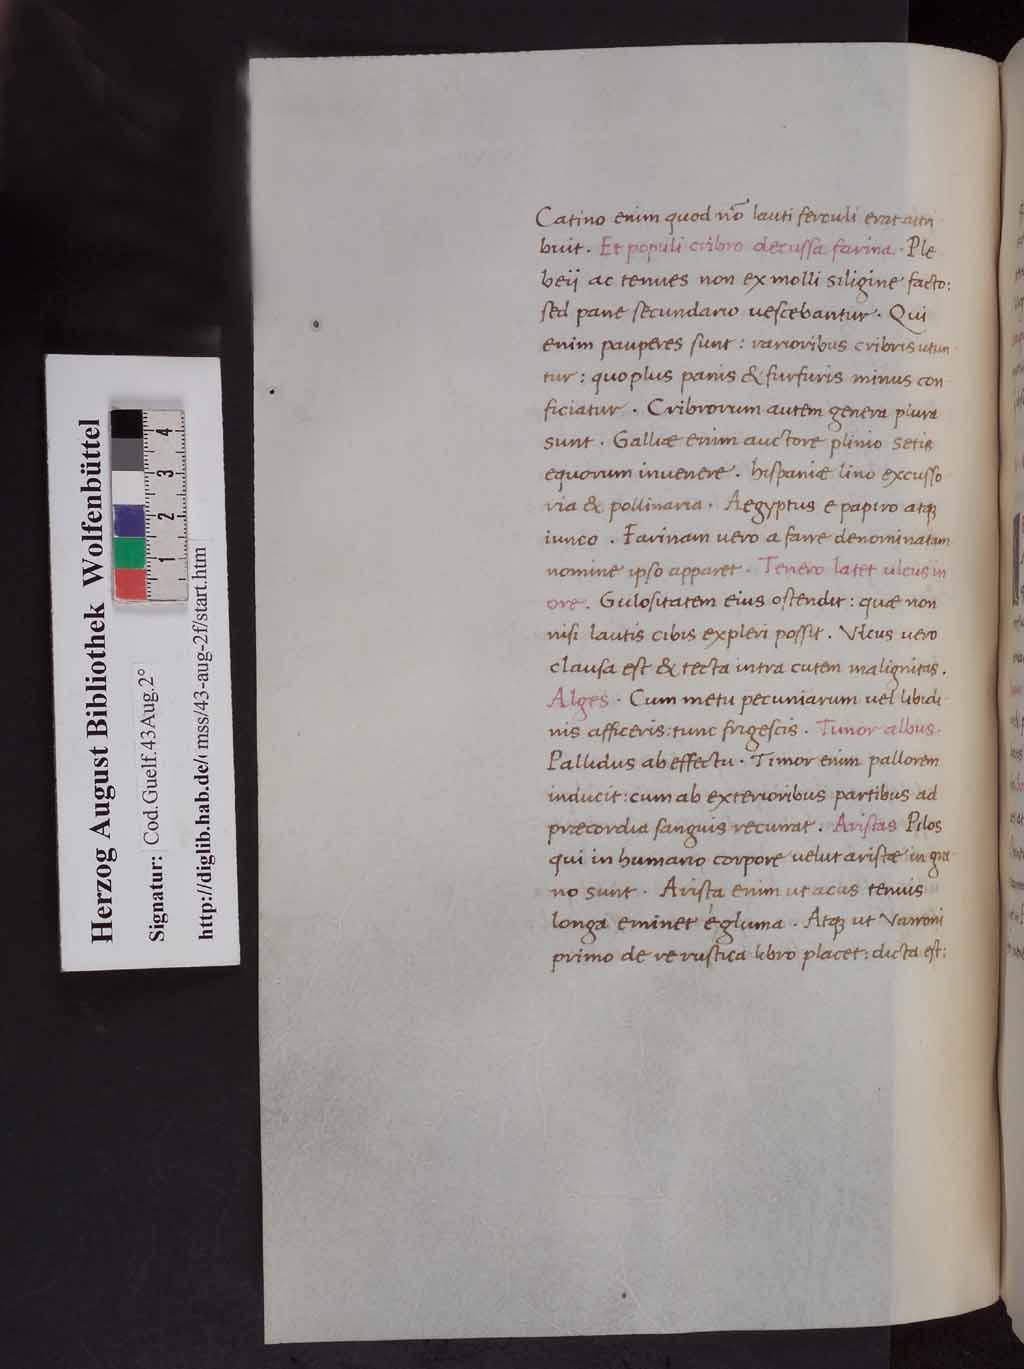 Catino enim quod nō lauti ferculi erat attri
buit. Et populi cribro decussa farina. Ple
beij ac tenues non ex molli siligine facto:
sed pane secundario uescebantur. Qui
enim pauperes sunt: rarioribus cribris utun
tur: quo plus panis & furfuris minus con
ficiatur. Cribrorum autem genera plura
sunt. Galliæ enim auctore plinio setis
equorum inuenere. hispaniæ lino excusso
ria & pollinaria. Aegyptus e papiro atqꝫ
iunco. Farinam uero a farre denominatam
nomine ipso apparet. Tenero latet ulcus in
ore. Gulositatem eius ostendit: quæ non
nisi lautis cibis expleri possit. Vlcus uero
clausa est & tecta intra cutem malignitas.
Alges. Cum metu pecuniarum uel libidi
nis afficeris: tunc frigescis. Timor albus.
Pallidus ab effectu. Timor enim pallorem
inducit: cum ab exterioribus partibus ad
præcordia sanguis recurrat. Aristas Pilos
qui in humano corpore uelut aristæ in gra
no sunt. Arista enim ut acus tenuis
longa eminet é gluma. Atqꝫ ut Varroni
primo de re rustica libro placet: dicta est:
Herzog August Bibliothek Wolfenbüttel
Signatur: Cod.Guelf.43Aug.2°
http://diglib.hab.de/ mss/43-aug-2f/start.htm
1 2 3 4